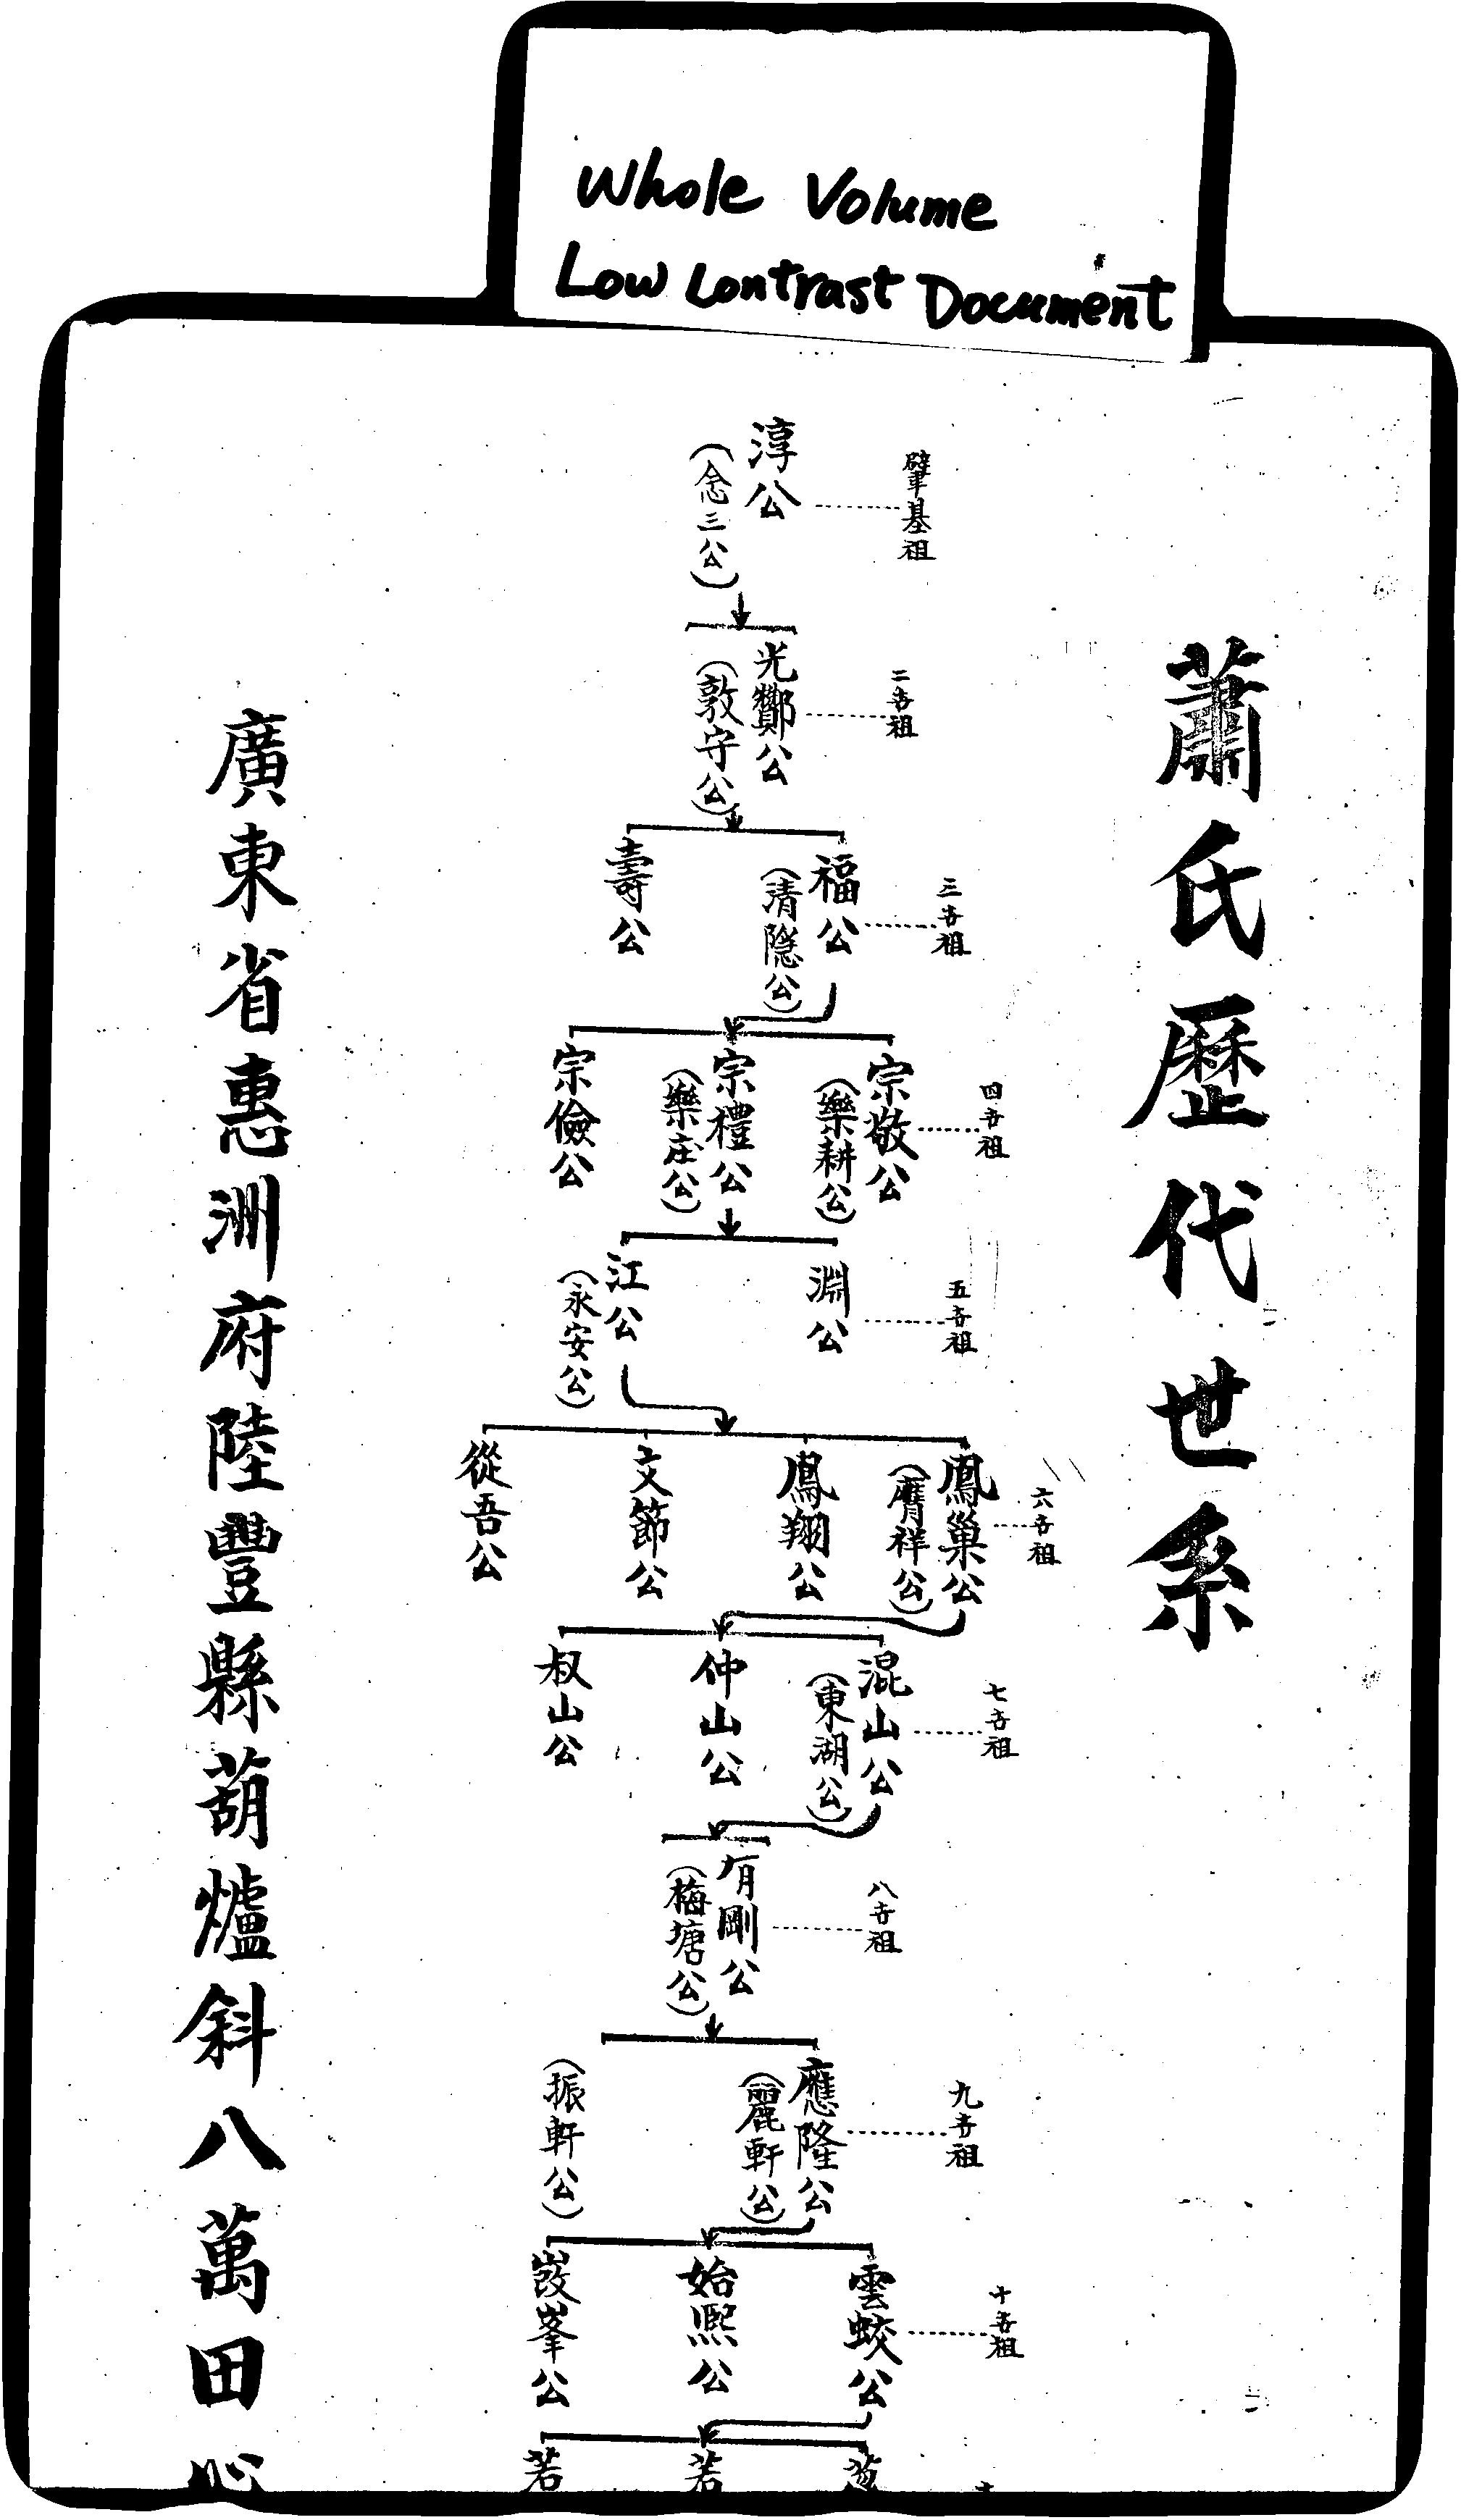 Whole Volume
Low Contrast Document
蕭氏歷代世系
肇基祖
淳公
(念三公)
二世祖
光酇公
(敦守公)
三世祖
福公
(清隱公)
壽公
四世祖
宗敬公
(樂耕公)
宗禮公
(樂庄公)
宗儉公
五世祖
淵公
江公
(永安公)
六世祖
鳳巢公
(膺祥公)
鳳翔公
文節公
從吾公
七世祖
混山公
(東湖公)
仲山公
叔山公
八世祖
有剛公
(梅塘公)
九世祖
應隆公
(麗軒公)
(振軒公)
十世祖
雲蛟公
始熙公
峯公
若
若
廣東省惠洲府陸豐縣葫爐斜八萬田心